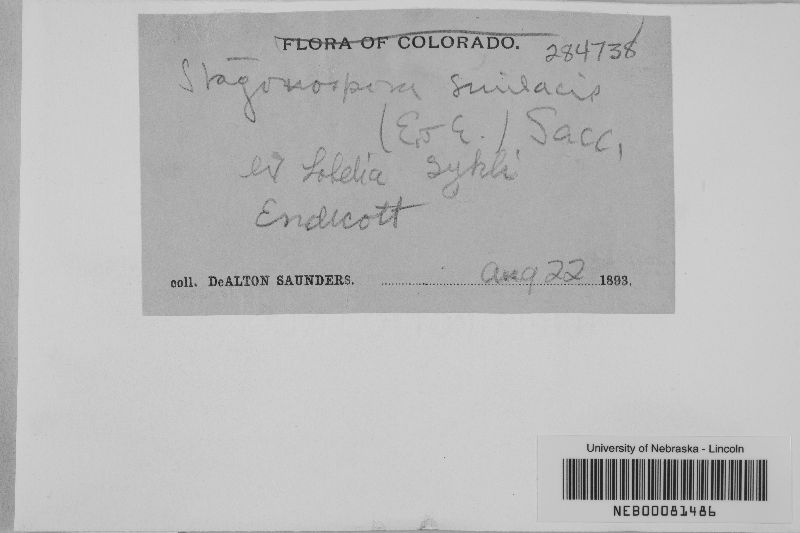 FLORA OF COLORADO.
284738
Stagonospora Smilacis
(E. & E.) Sacc.
Endicott
coll. DeALTON SAUNDERS. Aug 22 1893.
University of Nebraska - Lincoln
NEB00081486